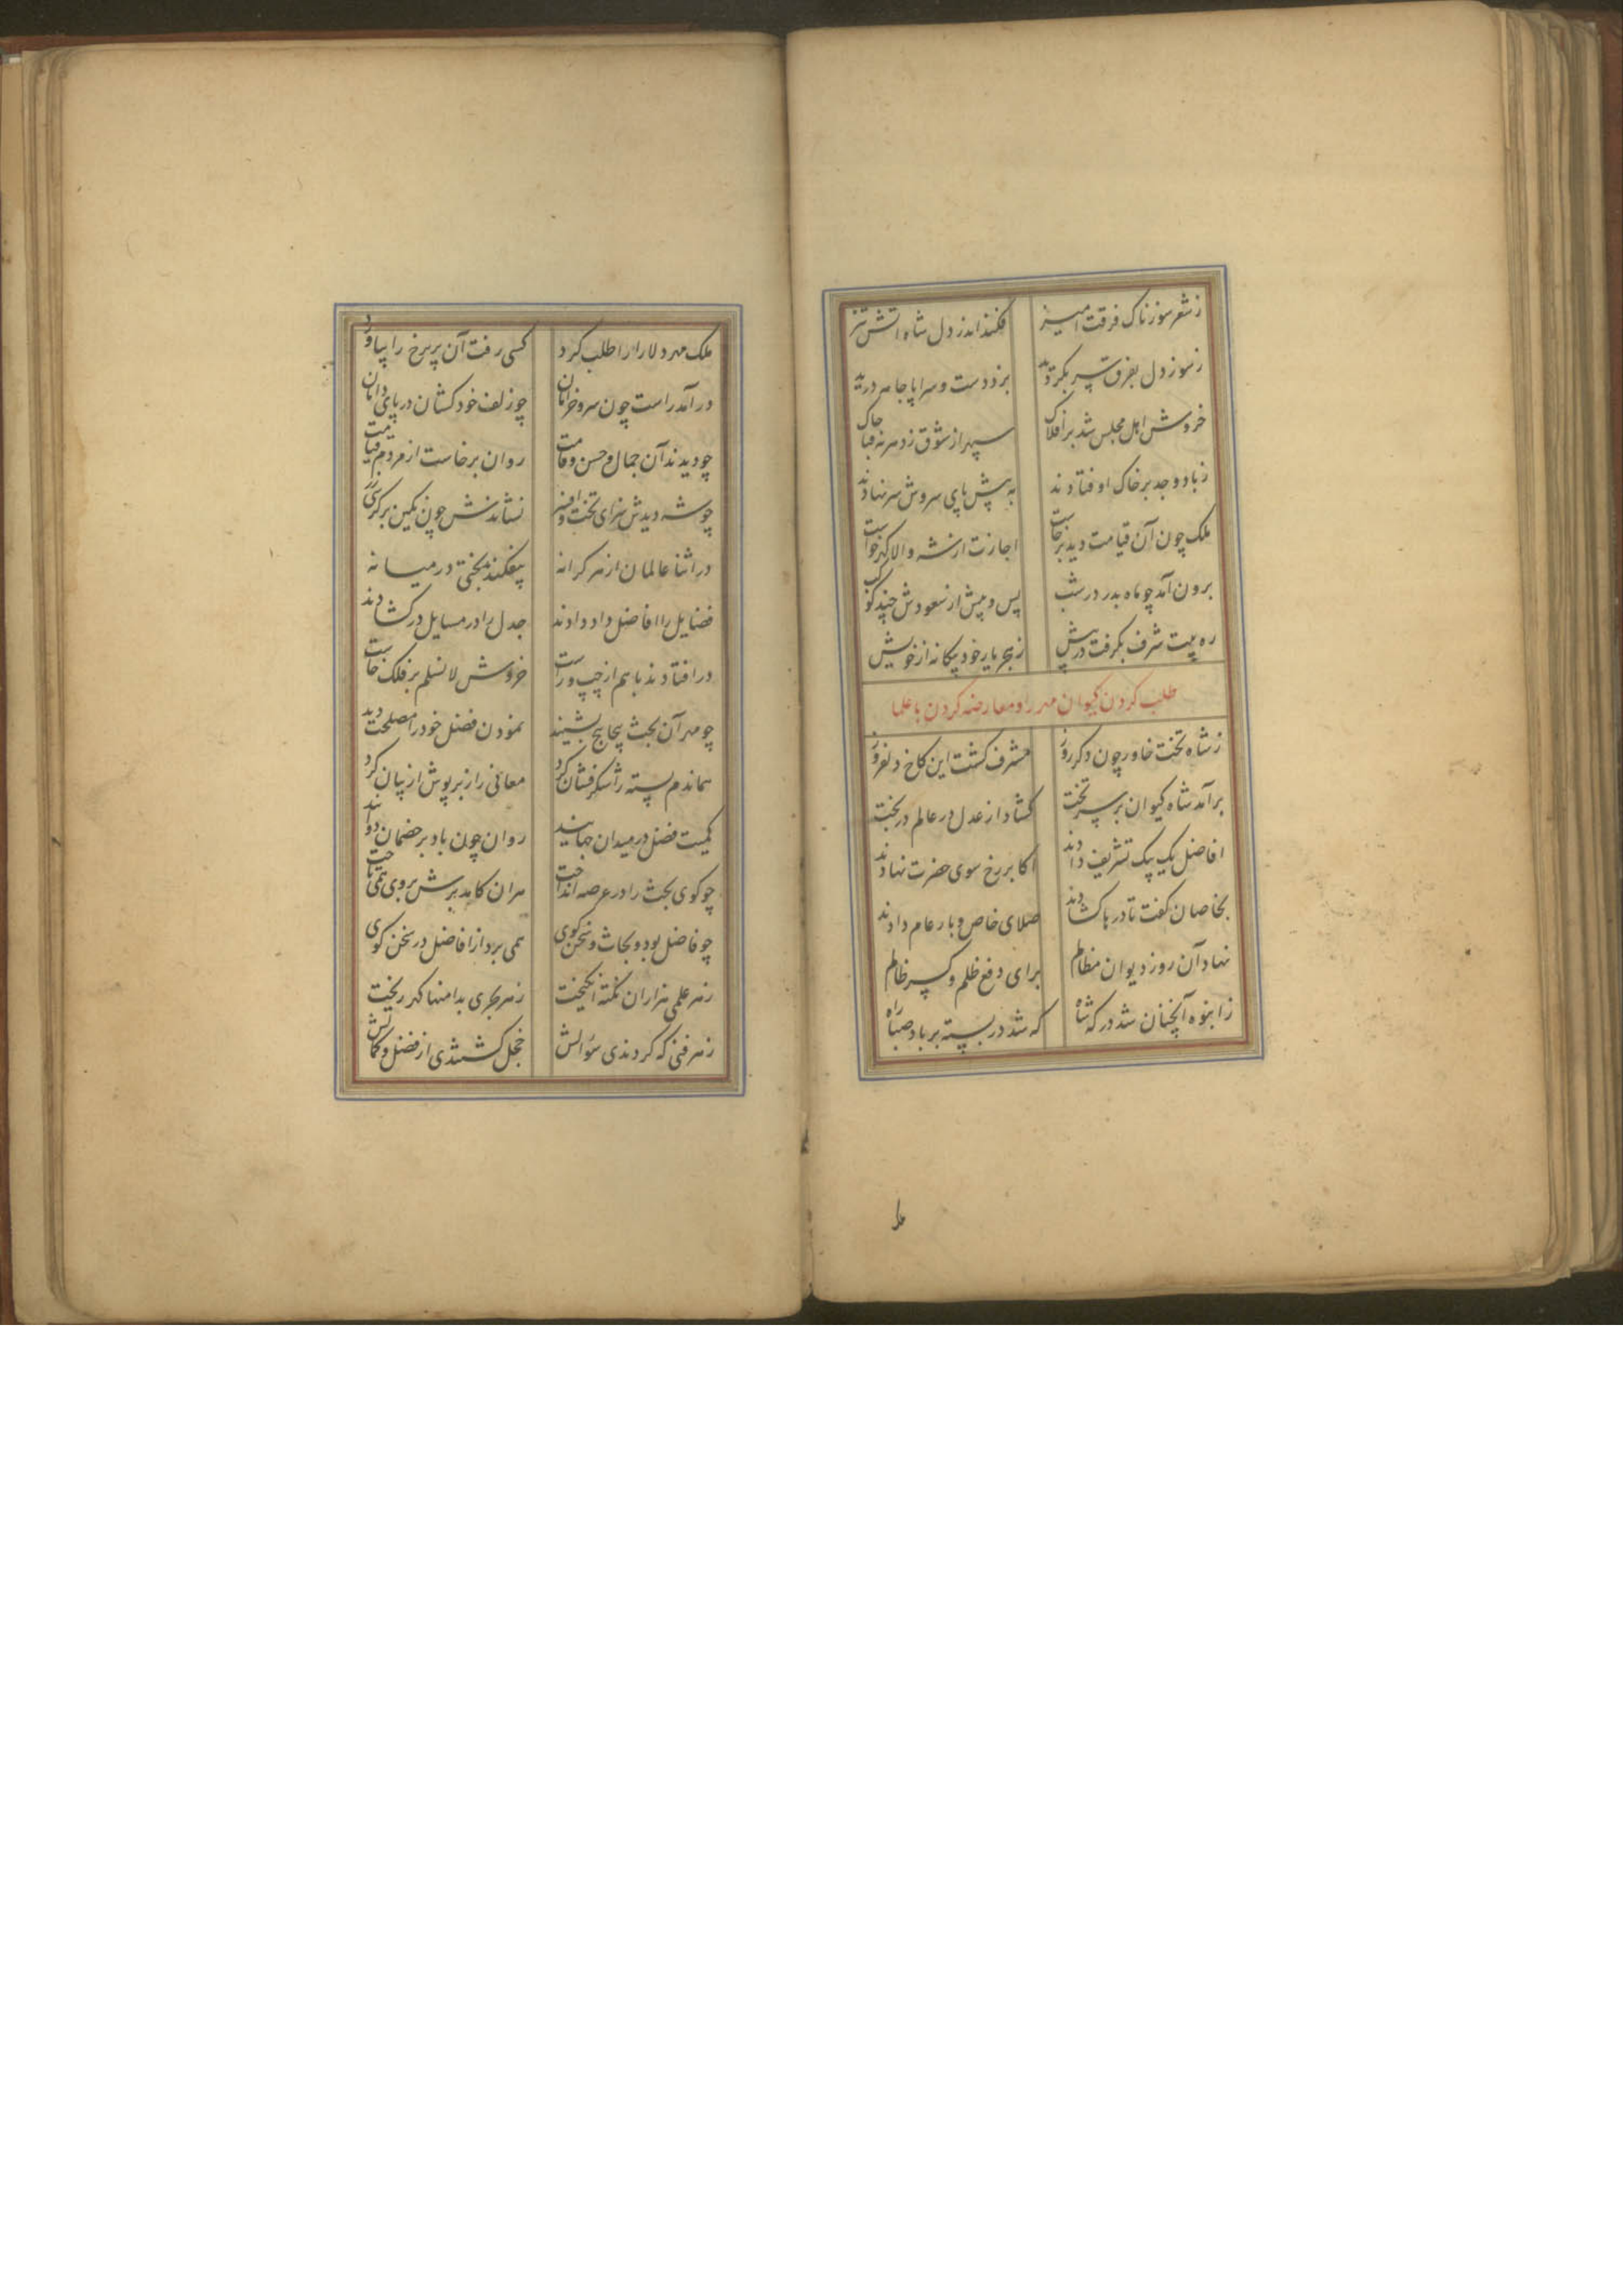 ز شعر سوزناک فرقت آمیز فکند اندر دل شاه آتش تیز
ز سوز دل بفرق سر بگردید بزد دست و سراپا جامه درید
خروش اهل مجلس شد بر افلاک سپهر از شوق زد هر نه قبا چاک
ز باد وجد بر خاک اوفتادند به پیش پای سروش سر نهادند
ملک چون آن قیامت دید برخاست اجازت از شه والا گهر خواست
برون آمد چو ماه بدر در شب پس و پیش از سعودش چند کوکب
ره بیت شرف بگرفت در پیش ز هجر یار خود بیگانه از خویش
طلب کردن کیوان مهر را و معارضه کردن با علما
ز شاه تخت خاور چون دگر روز مشرف گشت این کاخ دلفروز
برآمد شاه کیوان بر سر تخت گشاد از عدل در عالم در بخت
افاضل یک بیک تشریف دادند اکابر رخ سوی حضرت نهادند
بخاصان گفت تا درها گشادند صلای خاص و بار عام دادند
نهاد آن روز دیوان مظالم برای دفع ظلم و کسر ظالم
ز انبوه آنچنان شد درگه شاه که شد در بسته بر باد صبا راه
ملک مهر دلارا را طلب کرد کسی رفت آن پریرخ را بیاورد
درآمد راست چون سرو خرامان چو زلف خود کشان در پای دامان
چو دیدند آن جمال و حسن و قامت روان برخاست از مردم قیامت
چو شه دیدش سزای تخت و افسر نشاندش چون نگین بر کرسی
در اثنا عالمان از هر کرانه بیفکندند بحثی در میانه
فضایل را افاضل داد دادند جدل را در مسایل در گشادند
درافتادند با هم از چپ و راست خروش لانسلم بر فلک خاست
چو مهر آن بحث پیچاپیچ بشنید نمودن فضل خود را مصلحت دید
هماندم پسته را شکرفشان کرد معانی را ز بر پوش از بیان کرد
کمیت فضل در میدان جهانید روان چون باد بر خصمان دوانید
چو گوی بحث را در عرصه انداخت هر ان کامد برش بر وی همی تاخت
چو فاضل بود و بحاث و سخن گوی همی برد از افاضل در سخن گوی
ز هر علمی هزاران نکته انگیخت ز هر بحری بدامنها گهر ریخت
ز هر فنی که کردندی سؤالش خجل گشتندی از فضل و کمالش